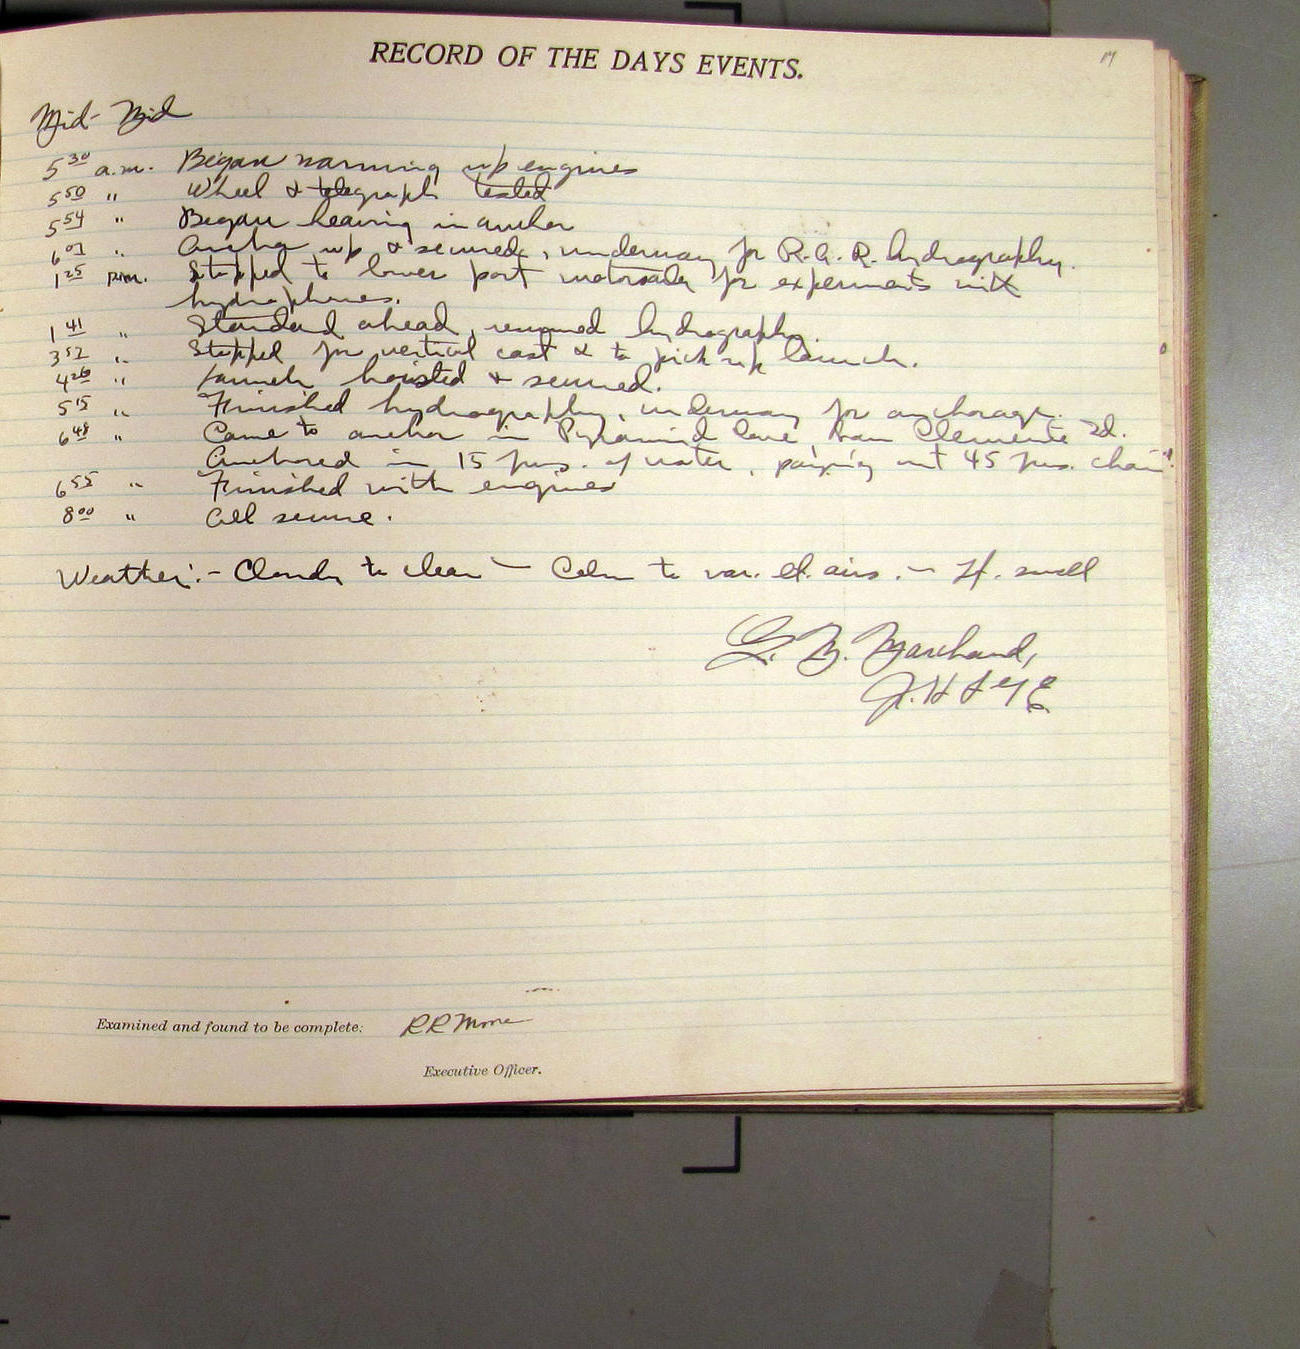 RECORD OF THE DAYS EVENTS.
Mid - Mid
5 30 a.m. Began warming up engines
5 50 " Wheel & telegraph tested
5 54 " Began heaving in anchor
6 01 " Anchor up & secured, underway for R.A.R. hydrography.
1 25 p.m. Stopped to lower port motorsailer for experiments with
hydrophones.
1 41 " Standard ahead, resumed hydrography.
3 52 " Stopped for vertical cast & to pick up launch.
4 26 " Launch hoisted & secured.
5 15 " Finished hydrography, underway for anchorage.
6 48 " Came to anchor in Pyramid Cove, San Clemente Id.
Anchored in 15 fms. of water, paying out 45 fms. chain.
6 55 " Finished with engines
8 00 " All secure.
Weather:- Cloudy to clear - Calm to var. lt. airs. - H. swell
G. M. Marchand,
J.H & G E
Examined and found to be complete: R R Moore
Executive Officer.